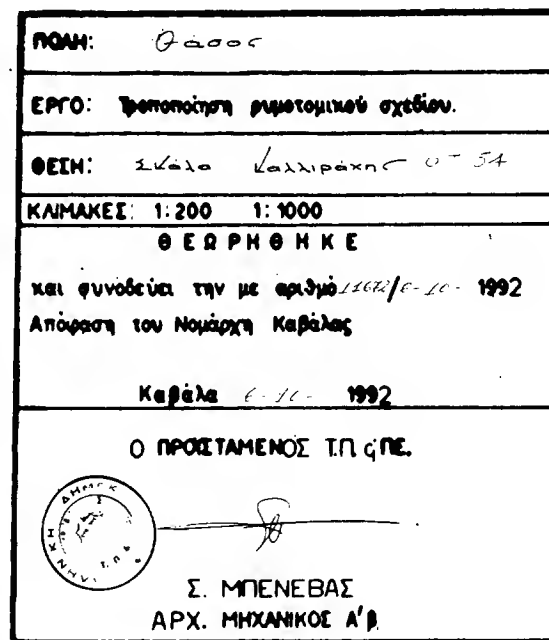 ΠΟΛΗ: Θάσος
ΕΡΓΟ: Τροποποίηση ρυμοτομικού σχεδίου.
ΘΕΣΗ: Σκάλα Καλλιράχης Ο-54
ΚΛΙΜΑΚΕΣ: 1:200 1:1000
ΘΕΩΡΗΘΗΚΕ
και συνοδεύει την με αριθμό 11672/6-10- 1992
Απόφαση του Νομάρχη Καβάλας
Καβάλα 6-10- 1992
Ο ΠΡΟΪΣΤΑΜΕΝΟΣ Τ.Π. ΠΕ.
Σ. ΜΠΕΝΕΒΑΣ
ΑΡΧ. ΜΗΧΑΝΙΚΟΣ Α'β.